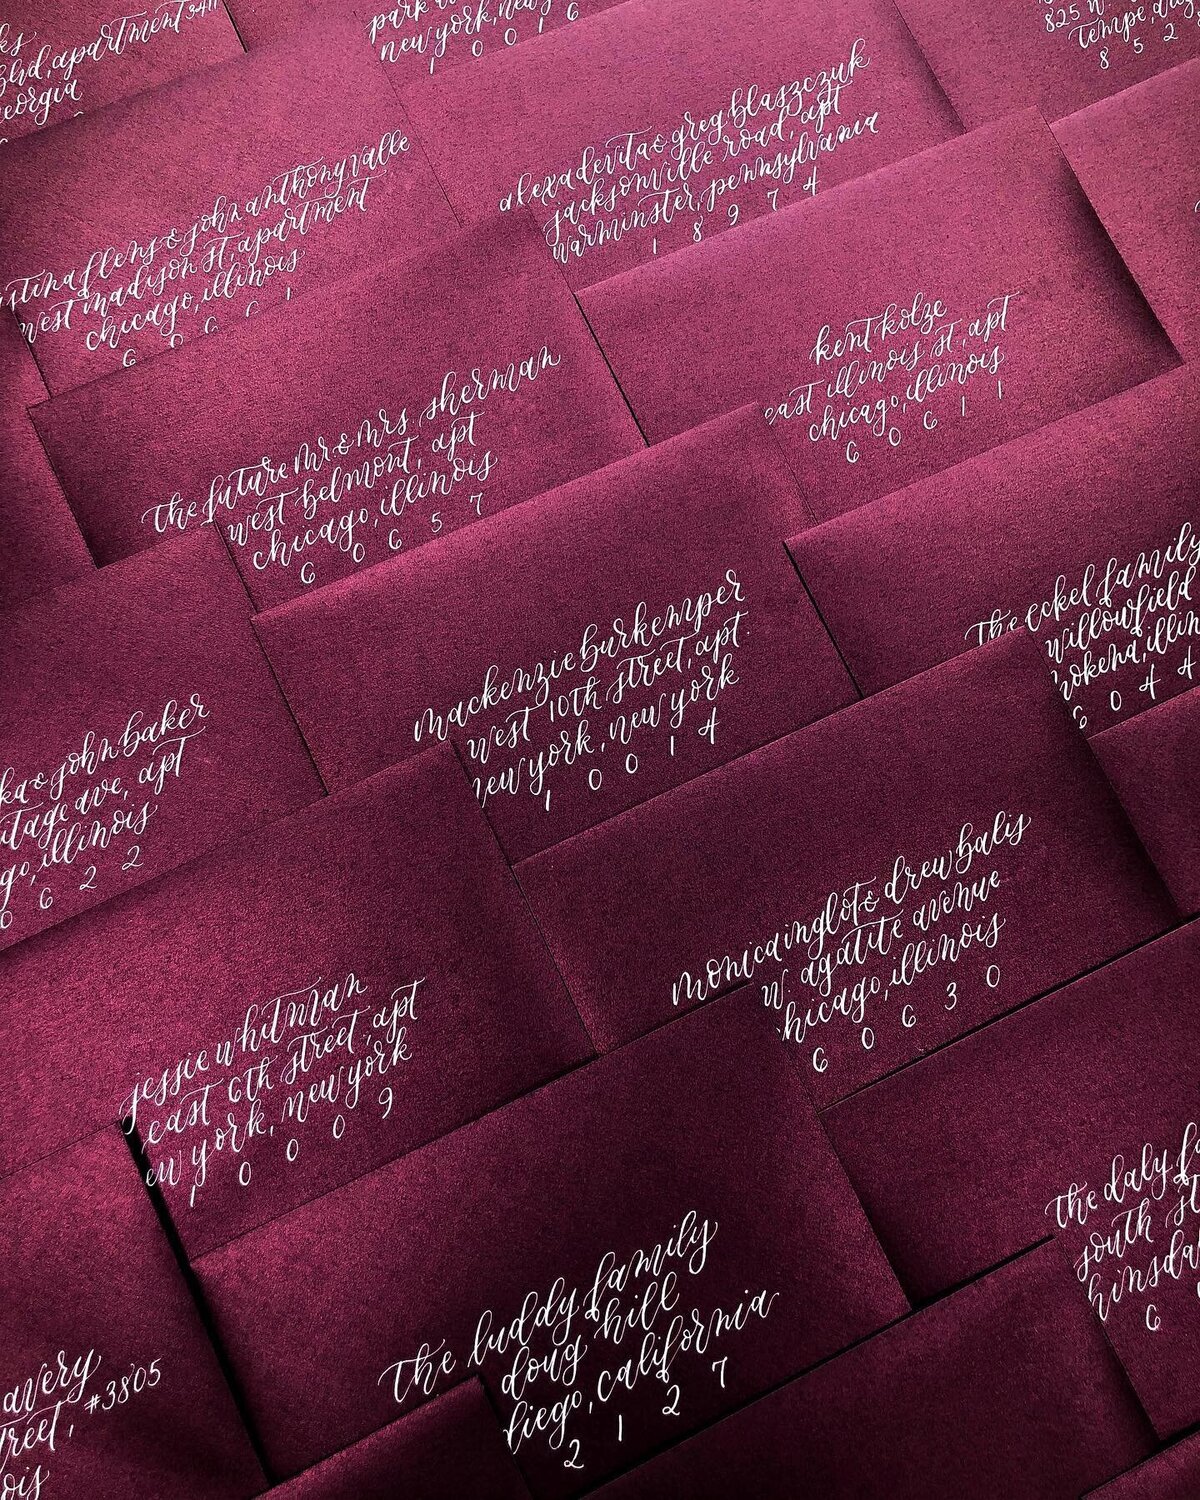 apartment
eorgia
park
new york, new
1 0 0 1 6
825
tempe,
8 5 2
flens & john anthony valle
west madison st, apartment
chicago, illinois
6 0 6 6 1
alexa devita & greg blaszczuk
jacksonville road, apt
warminster, pennsylvania
1 8 9 7 4
kent kolze
east illinois st, apt
chicago, illinois
6 0 6 1 1
the future mr. & mrs. sherman
west belmont, apt
chicago, illinois
6 0 6 5 7
the eckel family
willowfield
mokena, illin
6 0 4 4
mackenzie burkemper
west 10th street, apt.
new york, new york
1 0 0 1 4
ka & john baker
itage ave, apt
go, illinois
0 6 2 2
monica inglot & drew balis
w. agatite avenue
chicago, illinois
6 0 6 3 0
jessie whitman
east 6th street, apt
ew york, new york
1 0 0 0 9
the daly fa
south st
hinsdal
6
the luddy family
doug hill
diego, california
2 1 2 7
avery
reet, #3805
ois